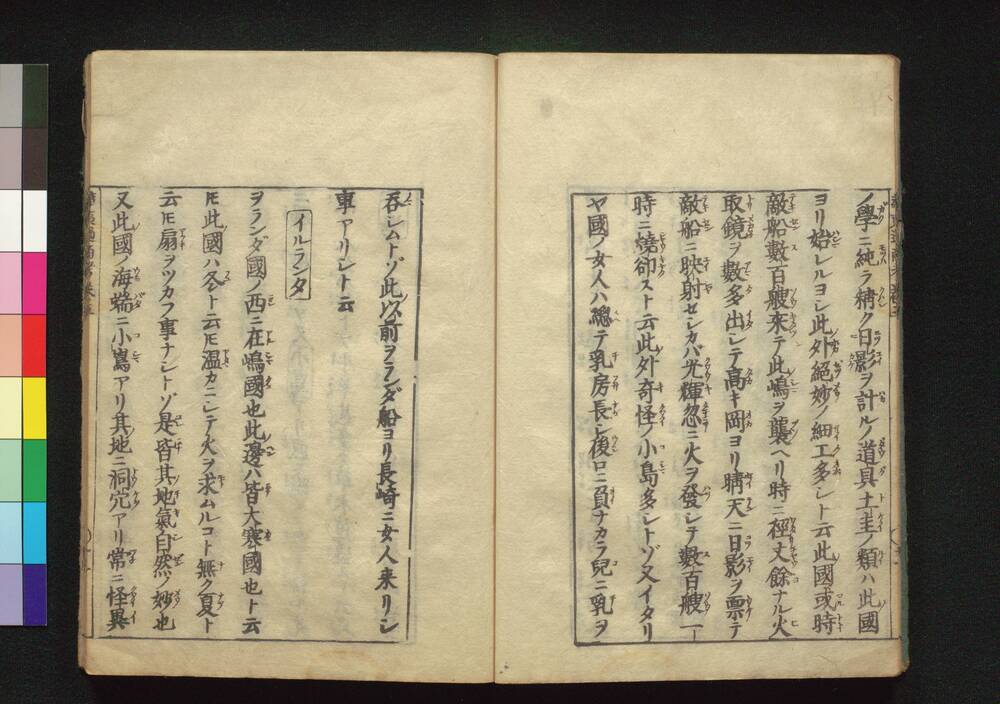 ノ學ニ純ラ精ク日影ヲ計ルノ道具土圭ノ類ハ此國
ヨリ始レルヨシ此外絕妙ノ細工多シト云此國或時
敵船數百艘來テ此嶋ヲ襲ヘリ時ニ徑丈餘ナル火
取鏡ヲ數多出シテ高キ岡ヨリ晴天ニ日影ヲ禀テ
敵船ニ映射セシカバ光輝忽ニ火ヲ發シテ數百艘一
時ニ燒却スト云此外奇怪ノ小島多シトゾ又イタリ
ヤ國ノ女人ハ總テ乳房長シ後ロニ負ナカラ兒ニ乳ヲ
呑シムトゾ此以前ヲランダ船ヨリ長崎ニ女人来リシ
事アリシト云
イルランタ
ヲランダ國ノ西ニ在嶋國也此邊ハ皆大寒國也ト云
𪜈此國ハ冬ト云𪜈温カニシテ火ヲ求ムルコト無ク夏ト
云𪜈扇ヲツカフ事ナシトゾ是皆其地氣自然ノ妙也
又此國ノ海端ニ小嶌アリ其地ニ洞穴アリ常ニ怪異